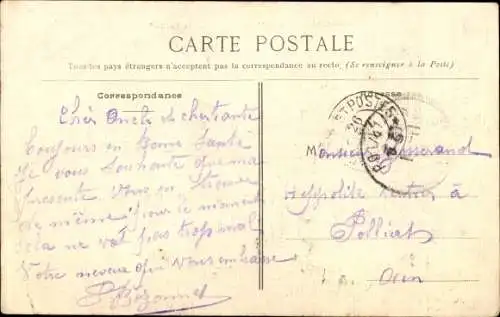 CARTE POSTALE
Tous les pays étrangers n'acceptent pas la correspondance au recto. (Se renseigner à la Poste)
Correspondance
Cher Oncle et chertante
Toujours en bonne Santé
Je vous Souhaite que ma
presente Vous en
de même pour le moment
cela ne vat pas trop mal
Votre neveux qui Vous embrasse
ET POSTES
Monsieur
Hippolite Rentier à
Polliat
Ain